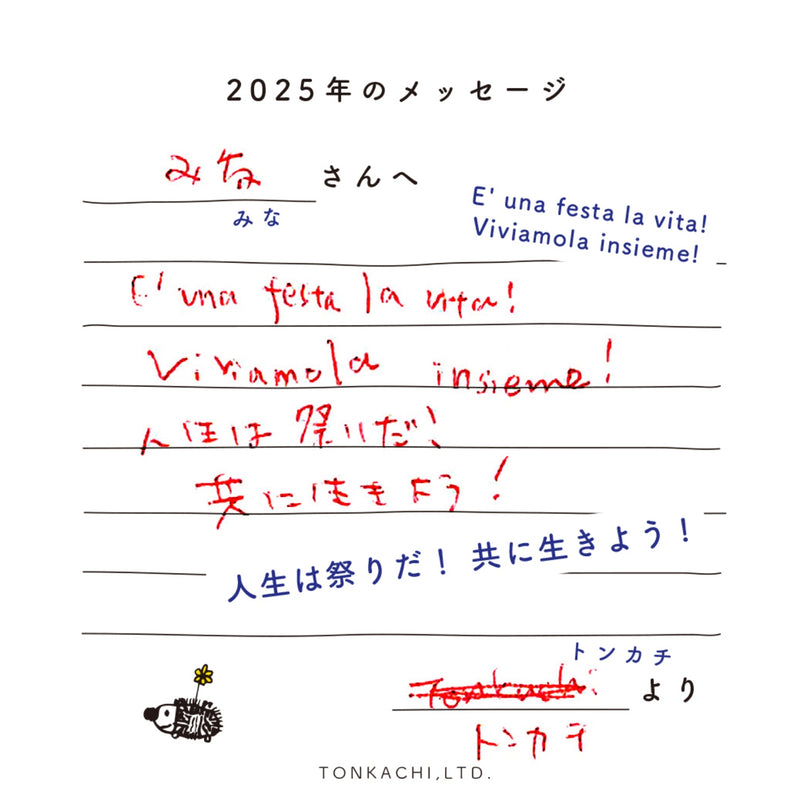 2025年のメッセージ
みな さんへ
みな
E' una festa la vita!
Viviamola insieme!
E' una festa la vita!
Viviamola insieme!
人生は祭りだ!
共に生きよう!
人生は祭りだ！ 共に生きよう！
トンカチ
Tonkachi より
トンカチ
TONKACHI,LTD.